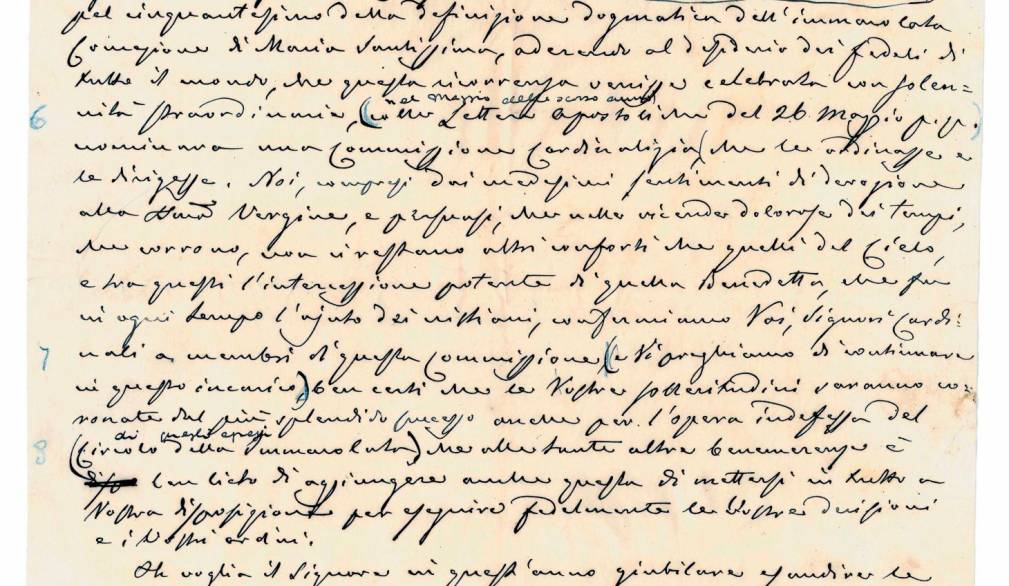 pel cinquantesimo della definizione dogmatica dell'immacolata
Concezione di Maria Santissima, aderendo al desiderio dei fedeli di
tutto il mondo, che questa ricorrenza venisse celebrata con solen=
6 nità straordinaria, (colla Lettera Apostolica del 26 Maggio p.p.)
nominava una Commissione Cardinalizia che le ordinasse e
le dirigesse. Noi, compresi dai medesimi sentimenti di devozione
alla Vergine, e persuasi, che nelle vicende dolorose dei tempi,
che corrono, non ci restano altri conforti che quelli del Cielo,
e tra questi l'intercessione potente di quella Benedetta, che fu
in ogni tempo l'ajuto dei cristiani, confermiamo Voi, Signori Cardi=
7 nali a membri di questa Commissione (e Vi preghiamo di continuare
in questo incarico) ben certi che le Vostre sollecitudini saranno co=
ronate dal più splendido successo anche per l'opera indefessa del
8 (Circolo della Immacolata) che alle tante altre benemerenze è
ben lieto di aggiungere anche questa di mettersi in tutto a
Vostra disposizione per eseguire fedelmente le Vostre decisioni
e i Vostri ordini.
Oh voglia il Signore in quest'anno giubilare esaudire le